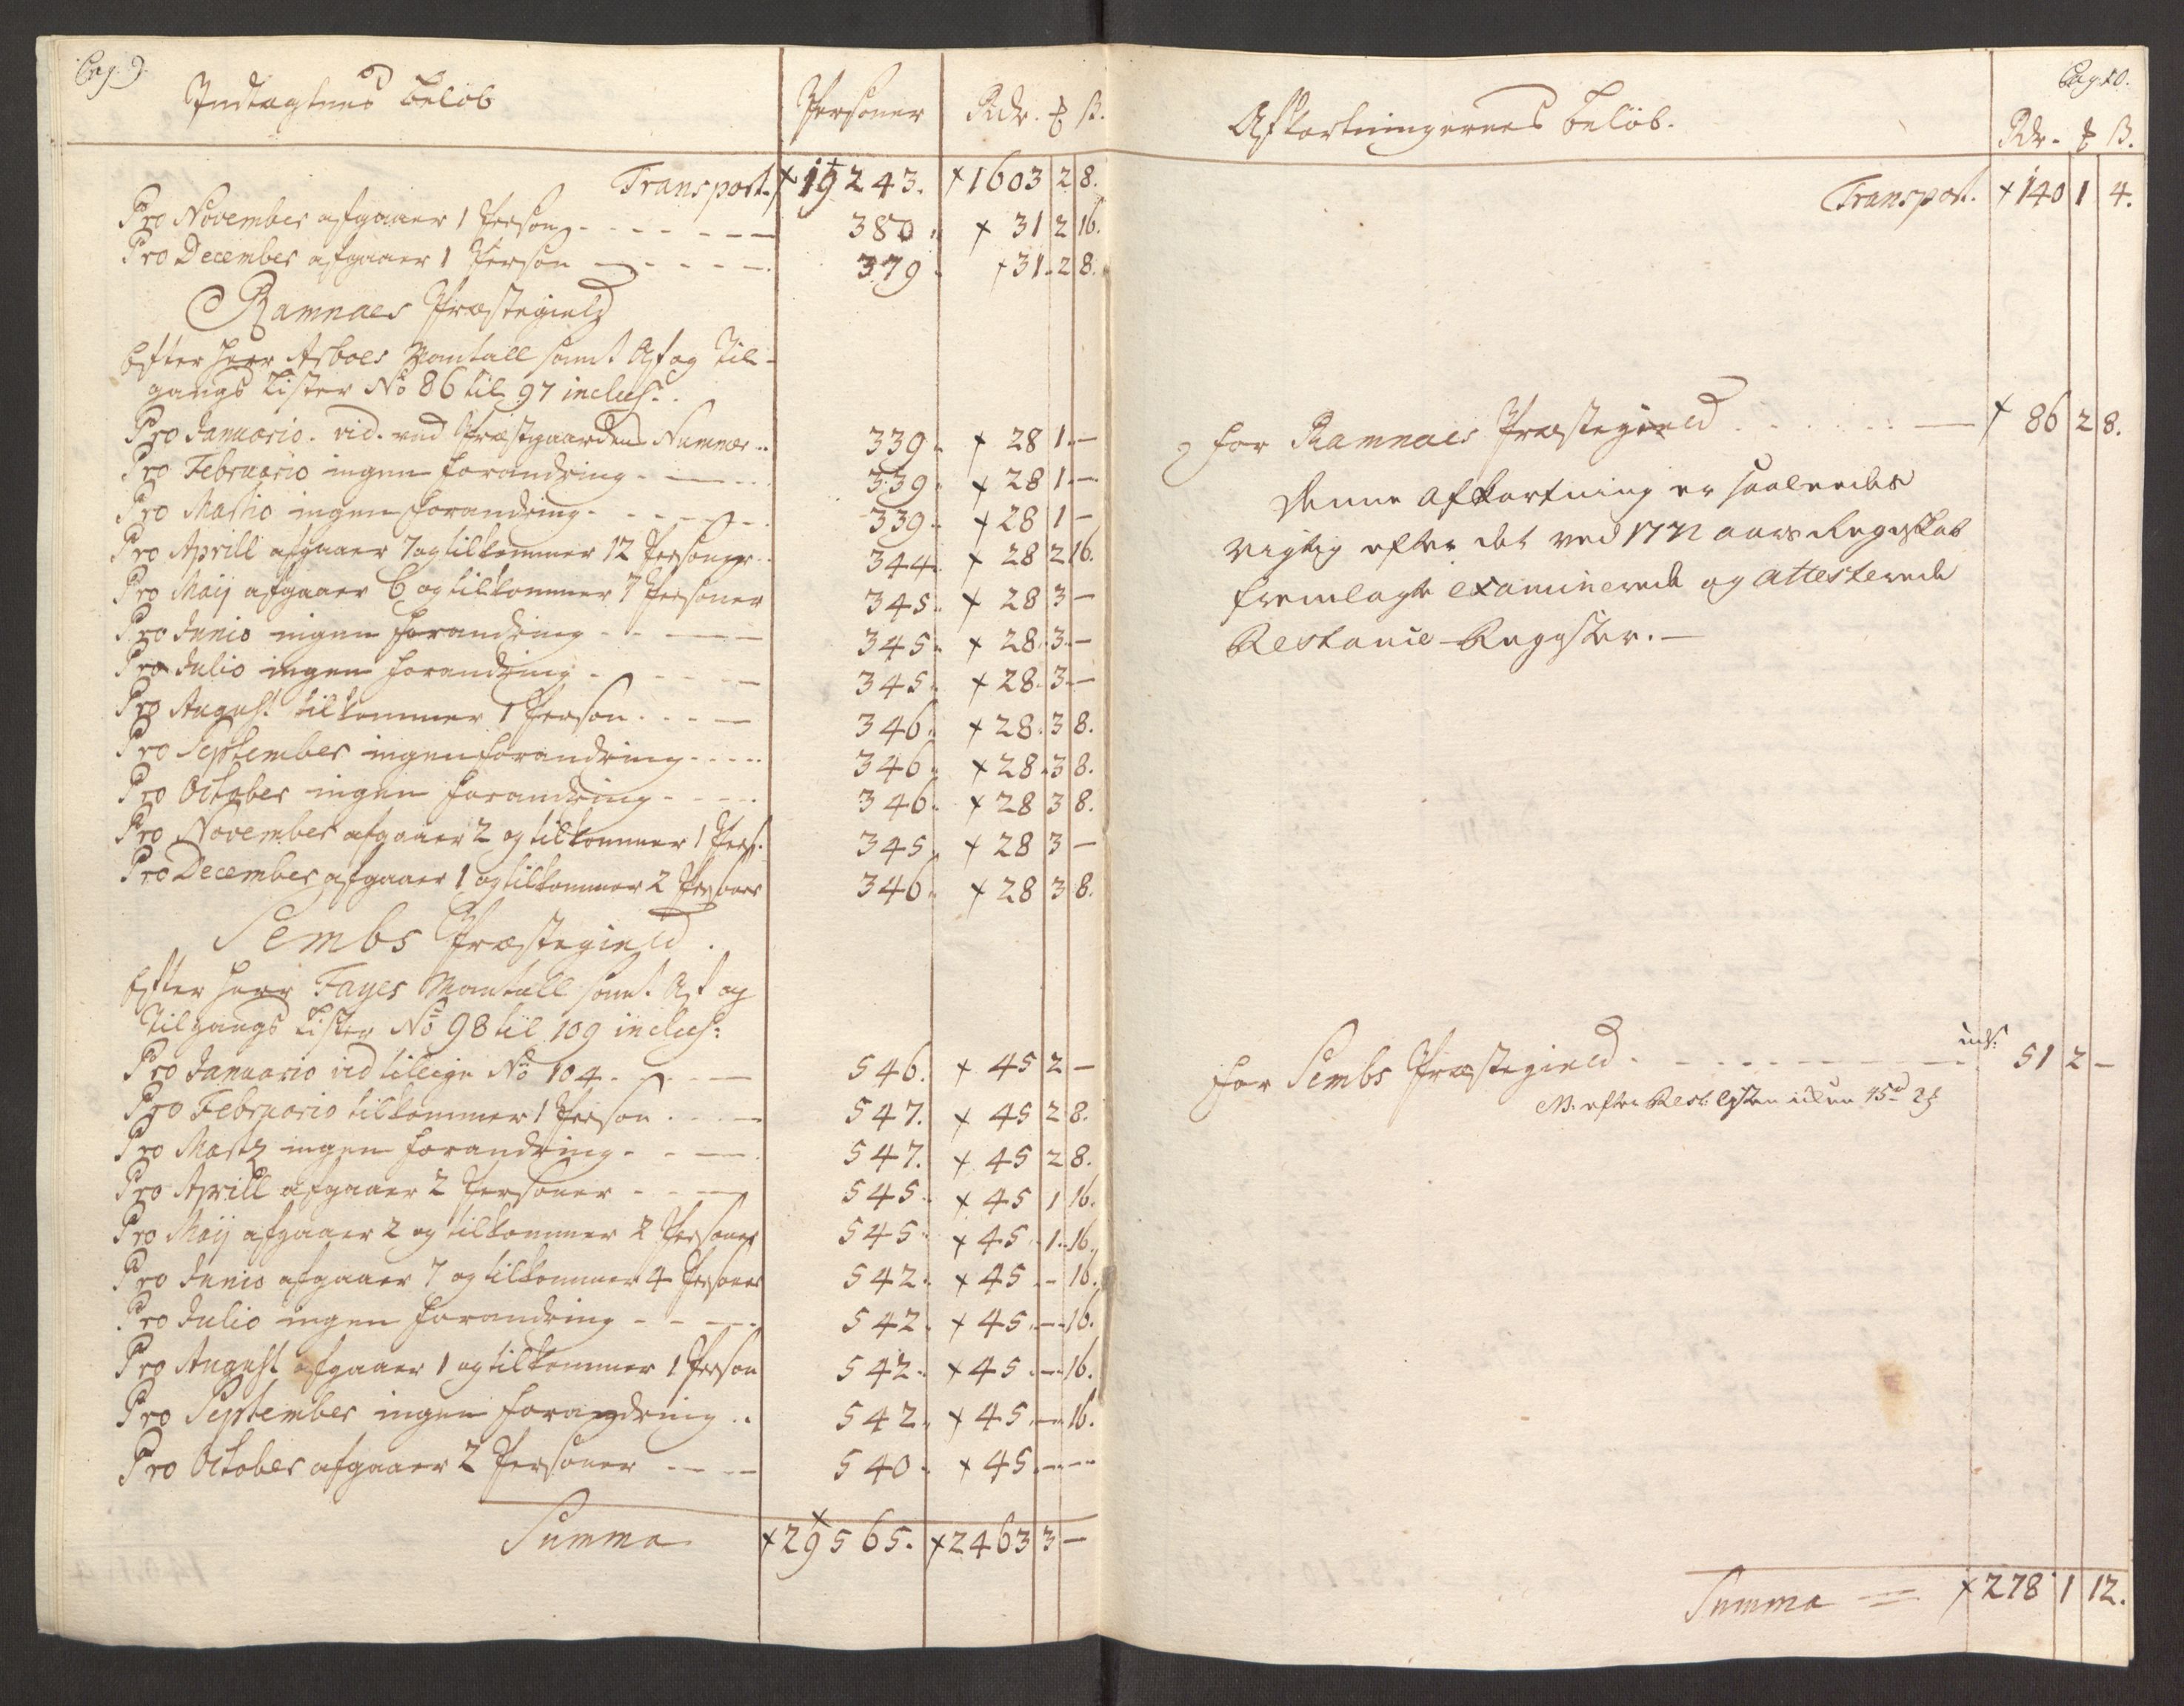 Pag. 9.
Indtægtens Beløb
Personer
Rdr. ß.
Transport. 19243. 1603 2 8.
Pro November afgaaer 1 Person 380. 31 2 16.
Pro December afgaaer 1 Person 379. 31 2 8.
Ramnæs Præstegield
Efter Herr Asboes Mantall samt Af og Til-
gangs Lister No 86 til 97 inclus:
Pro Januario. vid. ved Præstgaardens Nummer 339. 28 1 -
Pro Februario ingen forandring 339. 28 1 -
Pro Martio ingen forandring 339. 28 1 -
Pro Aprill afgaaer 7 og tilkommer 12 Personer 344. 28 2 16.
Pro Maij afgaaer 6 og tilkommer 7 Personer 345. 28 3 -
Pro Junio ingen forandring 345. 28 3 -
Pro Julio ingen forandring 345. 28 3 -
Pro August tilkommer 1 Person 346. 28 3 8.
Pro September ingen forandring 346. 28 3 8.
Pro October ingen forandring 346. 28 3 8.
Pro November afgaaer 2 og tilkommer 1 Pers. 345. 28 3 -
Pro December afgaaer 1 og tilkommer 2 Personer 346. 28 3 8.
Sembs Præstegield.
Efter Herr Fayes Mantall samt Af og
Tilgangs Lister No 98 til 109 inclus:
Pro Januario vid No 104 546. 45 2 -
Pro Februario tilkommer 1 Person 547. 45 2 8.
Pro Martz ingen forandring 547. 45 2 8.
Pro Aprill afgaaer 2 Personer 545. 45 1 16.
Pro Maij afgaaer 2 og tilkommer 2 Personer 545. 45 1 16.
Pro Junio afgaaer 7 og tilkommer 4 Personer 542. 45 - 16.
Pro Julio ingen forandring 542. 45 - 16.
Pro August afgaaer 1 og tilkommer 1 Person 542. 45 - 16.
Pro September ingen forandring 542. 45 - 16.
Pro October afgaaer 2 Personer 540. 45 - -
Summa 29565. 2463 3 -
Pag. 10.
Afkortningernes Beløb.
Rdr. ß.
Transport. 140 1 4.
for Ramnæs Præstegield 86 2 8.
Denne afkortning er saaledes
rigtig efter det ved 1772 aars Regnskab
fremlagte examinerede og attesterede
Restance-Register. -
for Sembs Præstegield 51 2 -
NB. efter Rest. Listen 45
Summa 278 1 12.